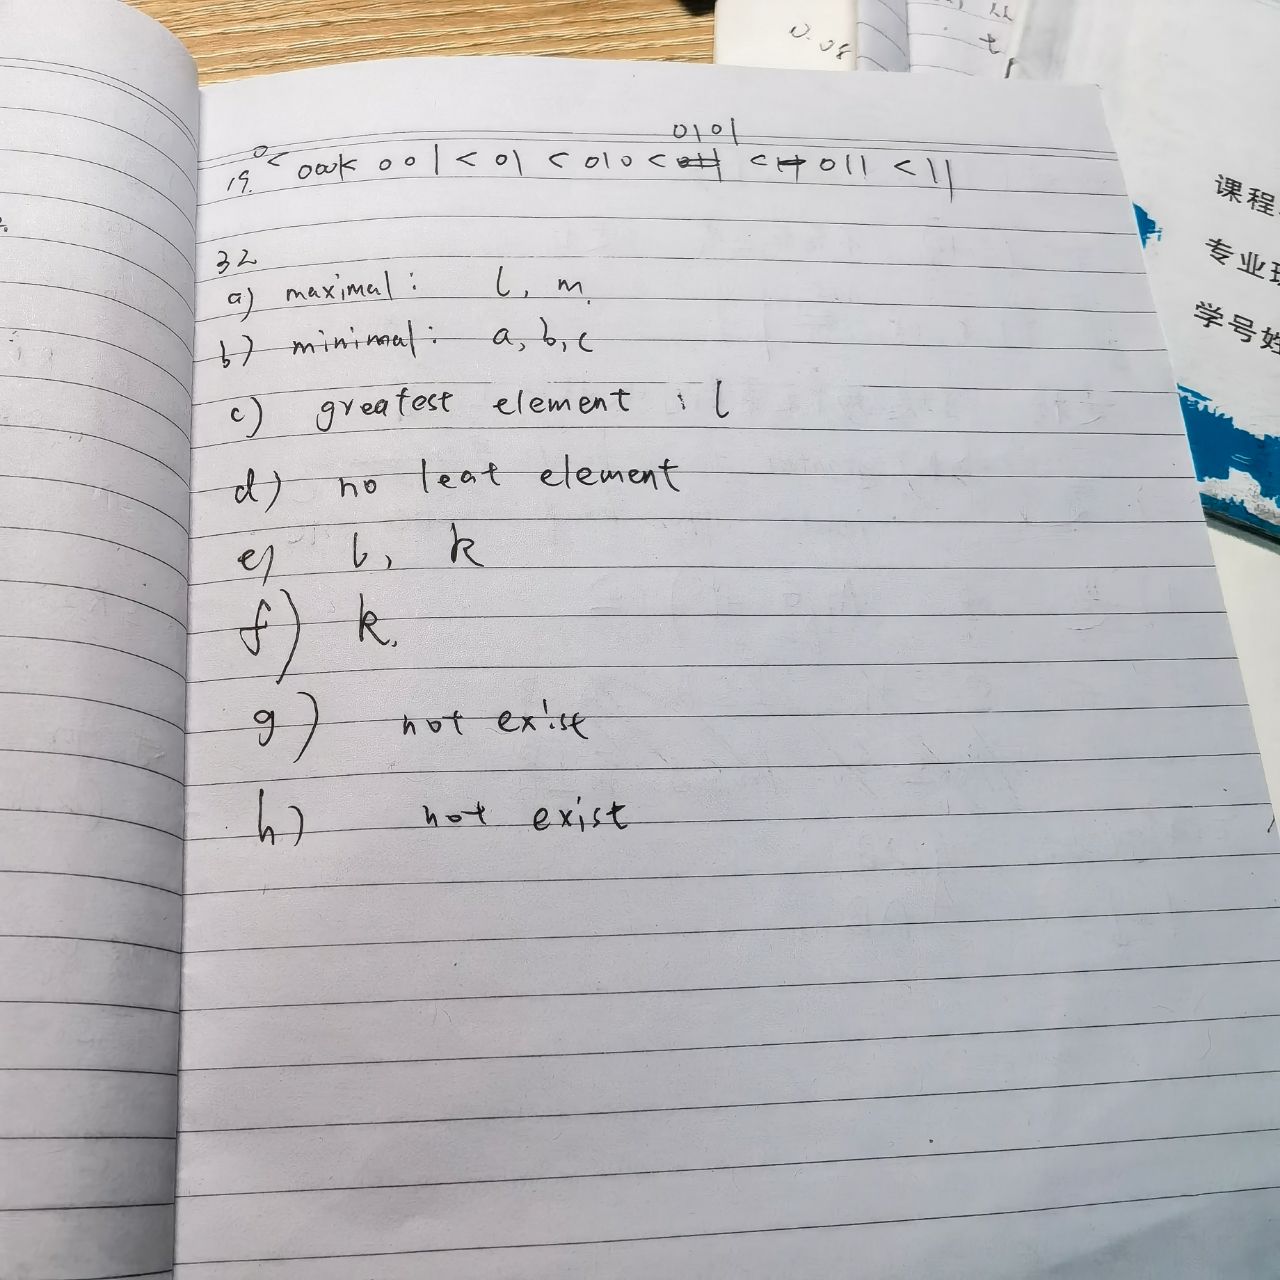 0.08
课程
专业班
学号姓
0101
19. 0 < 0001 < 001 < 01 < 010 < < 011 < 11
32
a) maximal : l, m.
b) minimal : a, b, c
c) greatest element : l
d) no leat element
e) l, k
f) k.
g) not exist
h) not exist